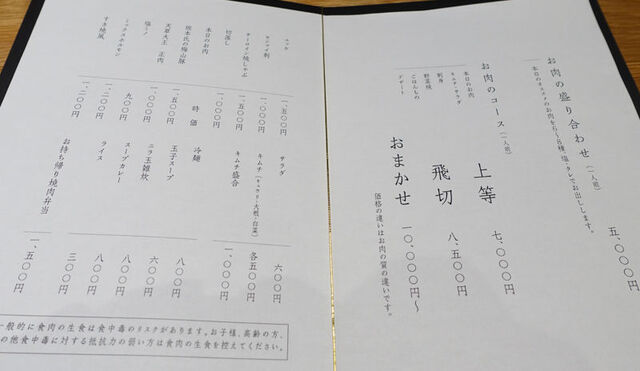 お肉の盛り合わせ(一人前) 五、〇〇〇円
本日のオススメのお肉を6〜8種、塩・タレでお出しします。
お肉のコース(一人前)
キムチ・サラダ
本日のお肉
刺身
野菜焼
ごはんもの
デザート
上等 七、〇〇〇円
飛切 八、五〇〇円
おまかせ 一〇、〇〇〇円〜
価格の違いはお肉の質の違いです。
ユッケ 一、五〇〇円
センマイ刺 一、〇〇〇円
サーロイン焼しゃぶ 一、五〇〇円
切落し 一、〇〇〇円
本日のお肉
坂本氏の梅山豚 時価
天草大王 正肉 一、五〇〇円
塩ミノ 九〇〇円
ミックスホルモン 一、二〇〇円
すき焼風 一、二〇〇円
サラダ 六〇〇円
キムチ(キュウリ・大根・白菜) 各五〇〇円
キムチ盛合 一、〇〇〇円
冷麺 八〇〇円
玉子スープ 六〇〇円
ニラ玉雑炊 八〇〇円
スープカレー 八〇〇円
ライス 三〇〇円
お持ち帰り焼肉弁当 一、五〇〇円
一般的に食肉の生食は食中毒のリスクがあります。お子様、高齢の方、
の他食中毒に対する抵抗力の弱い方は食肉の生食を控えてください。